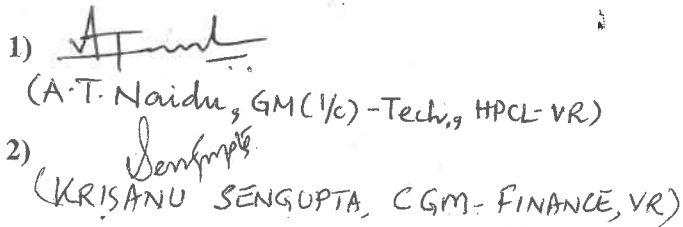 1)
(A.T. Naidu, GM(I/c)-Tech., HPCL-VR)
2) Sengupta
(KRISANU SENGUPTA, CGM-FINANCE, VR)